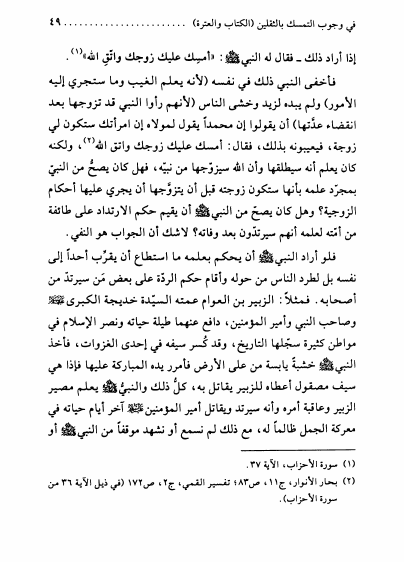 في وجوب التمسك بالثقلين (الكتاب والعترة) ........................ ٤٩
إذا أراد ذلك ـ فقال له النبي ﷺ: «أمسِك عليك زوجك واتّقِ الله»(١).
فأخفى النبي ذلك في نفسه (لأنه يعلم الغيب وما ستجري إليه
الأمور) ولم يبده لزيد وخشى الناس (لأنهم رأوا النبي قد تزوجها بعد
انقضاء عدّتها) أن يقولوا إن محمداً يقول لمولاه إن امرأتك ستكون لي
زوجة، فيعيبونه بذلك، فقال: أمسك عليك زوجك واتق الله(٢)، ولكنه
كان يعلم أنه سيطلقها وأن الله سيزوّجها من نبيّه، فهل كان يصحُّ من النبيّ
بمجرّد علمه بأنها ستكون زوجته قبل أن يتزوَّجها أن يجري عليها أحكام
الزوجية؟ وهل كان يصحّ من النبي ﷺ أن يقيم حكم الارتداد على طائفة
من أمّته لعلمه أنهم سيرتدّون بعد وفاته؟ لاشك أن الجواب هو النفي.
فلو أراد النبي ﷺ أن يحكم بعلمه ما استطاع أن يقرِّب أحداً إلى
نفسه بل لطرد الناس من حوله وأقام حكم الردّة على بعض مَن سيرتد من
أصحابه. فمثلاً: الزبير بن العوام عمته السيّدة خديجة الكبرى
وصاحب النبي وأمير المؤمنين، دافع عنهما طيلة حياته ونصر الإسلام في
مواطن كثيرة سجّلها التاريخ، وقد كُسر سيفه في إحدى الغزوات، فأخذ
النبي ﷺ خشبةً يابسة من على الأرض فأمرر يده المباركة عليها فإذا هي
سيف مصقول أعطاه للزبير يقاتل به، كلُّ ذلك والنبيُّ ﷺ يعلم مصير
الزبير وعاقبة أمره وأنه سيرتد ويقاتل أمير المؤمنين آخر أيام حياته في
معركة الجمل ظالماً له، مع ذلك لم نسمع أو نشهد موقفاً من النبي ﷺ أو
(١) سورة الأحزاب، الآية ٣٧.
(٢) بحار الأنوار، ج١١، ص٨٣؛ تفسير القمي، ج٢، ص١٧٢ (في ذيل الآية ٣٦ من
سورة الأحزاب).